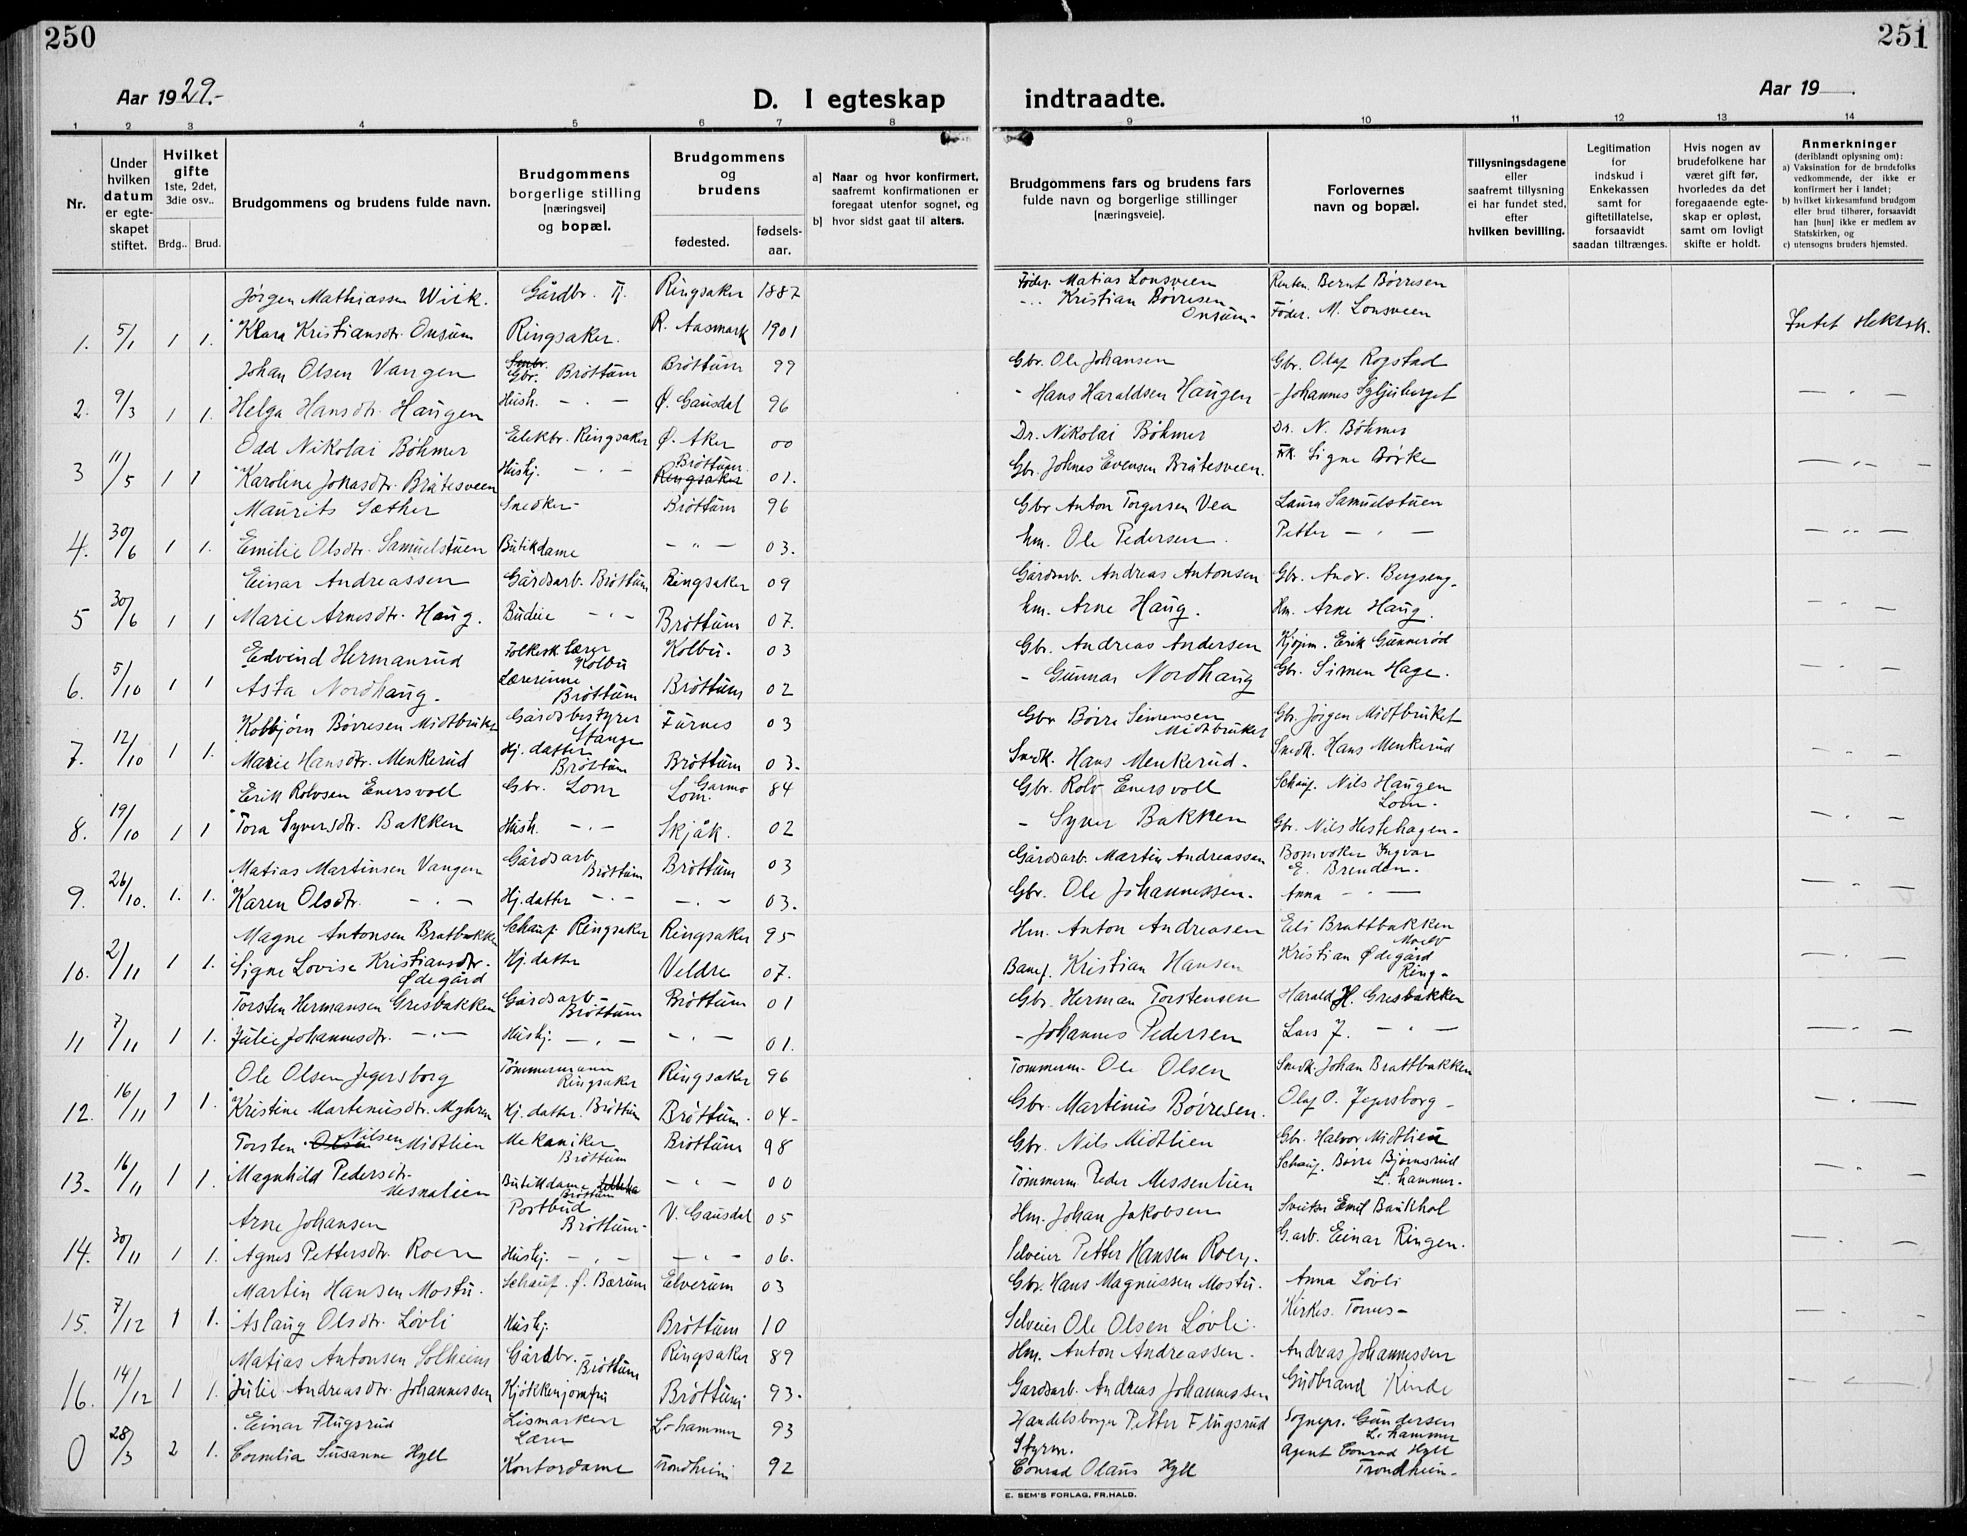 250
251
Aar 1929.-
D. I egteskap indtraadte.
Aar 19
1 2 3 4 5 6 7 8 9 10 11 12 13 14
Nr.
Under hvilken datum er egte-skapet stiftet.
Hvilket gifte 1ste, 2det, 3die osv..
Brdg.. Brud.
Brudgommens og brudens fulde navn.
Brudgommens borgerlige stilling [næringsvei] og bopæl.
Brudgommens og brudens
fødested.
fødsels-aar.
a] Naar og hvor konfirmert, saafremt konfirmationen er foregaat utenfor sognet, og
b] hvor sidst gaat til alters.
Brudgommens fars og brudens fars fulde navn og borgerlige stillinger [næringsveie].
Forlovernes navn og bopæl.
Tillysningsdagene eller saafremt tillysning ei har fundet sted, efter hvilken bevilling.
Legitimation for indskud i Enkekassen samt for giftetillatelse, forsaavidt saadan tiltrænges.
Hvis nogen av brudefolkene har været gift før, hvorledes da det foregaaende egte-skap er opløst, samt om lovligt skifte er holdt.
Anmerkninger (deriblandt oplysning om):
a) Vaksination for de brudefolks vedkommende, der ikke er konfirmert her i landet;
b) hvilket kirkesamfund brudgom eller brud tilhører, forsaavidt han [hun] ikke er medlem av Statskirken, og
c) utensogns bruders hjemsted.
Jørgen Mathiassen Wiik. Gårdbr. Ringsaker 1887 Føder. Matias Lonsveen Renten. Bernt Børresen
1. 5/1 1 1. Klara Kristiansdtr. Onsum Ringsaker. R. Aasmark 1901 -"- Kristian Børresen Onsum- Føder. M. Lonsveen Intet
Johan Olsen Vangen Smbr. Gbr. Brøttum Brøttum 99 Gbr. Ole Johansen Gbr. Olaf Rogstad
2. 9/3 1 1. Helga Hansdtr. Haugen Hush. - " - Ø. Gausdal 96 - Hans Haraldsen Haugen - Johannes - " -
Odd Nikolai Böhmer Elektr. Ringsaker Ø. Aker 00 Dr. Nikolai Böhmer Dr. N. Böhmer
3 11/5 1 1 Karoline Jonasdtr. Bråtesveen Hushj. - " - Brøttum Ringsaker 01. Gbr. Johnes Evensen Bråtesveen. Frk. Signe Børke - " -
Maurits Sæther Snedker- Brøttum 96 Gbr Anton Torgersen Vea Laura Samuelstuen
4. 30/6 1 1. Emilie Olsdtr. Samuelstuen Butikdame - " - 03. hm. Ole Pedersen. Petter - " - - " -
Einar Andreassen Gårdsarb. Brøttum Ringsaker 09 Gårdsarb. Andreas Antonsen Gbr. Andr. Bergseng.
5 30/6 1 1 Marie Arnesdtr. Haug. Budeie - " - Brøttum 07. hm. Arne Haug. Hm. Arne Haug. - " -
Edvind Hermanrud Folkesk lærer Kolbu Kolbu. 03 Gbr. Andreas Andersen Kjøpm. Erik Gunnerød
6. 5/10 1 1 Asta Nordhaug. Lærerinne Brøttum Brøttum 02 - Gunnar Nordhaug Gbr. Simen Hage. - " -
Kolbjørn Børresen Midtbruket Gårdsbestyrer Stange Furnes 03 Gbr Børre Simensen Midtbruket Gbr. Jørgen Midtbruket
7. 12/10 1 1. Marie Hansdtr. Menkerud Hj. datter Brøttum Brøttum 03. Snedk. Hans Menkerud. Snedk. Hans Menkerud - " -
Erik Rolvsen Enersvoll Gbr. Lom Garmo Lom. 84 Gbr. Rolv Enersvoll Schauf. Nils Haugen Lom.
8. 19/10 1 1 Tora Syversdtr. Bakken Hush. - " - Skjåk. 02 - Syver Bakken Gbr. Nils Hestehagen- - " -
Matias Martinsen Vangen Gårdsarb Brøttum Brøttum 03 Gårdsarb. Martin Andreassen Bomvokter Ingvar E. Brenden.
9. 26/10. 1. 1. Karen Olsdtr. - " - Hj. datter - " - - " - 03. Gbr. Ole Johannessen. Anna - " - - " -
Magne Antonsen Bratbakken Schauf. Ringsaker Ringsaker 95 Hm. Anton Andreasen Eli Brattbakken Moelv
10. 2/11 1 1. Signe Lovise Kristiansdtr. Ødegård Hj. datter Veldre 07. Banef. Kristian Hansen Kristian Ødegård Ring- - " -
Torsten Hermansen Gresbakken Gårdsarb - Brøttum Brøttum 01 Gbr. Herman Torstensen Harald H. Gresbakken
11 7/11 1 1. Julie Johannesdtr. - " - Hushj. - " - - " - 01. - Johannes Pedersen Lars J. - " - - " -
Ole Olsen Jegersborg Tømmermann Ringsaker Ringsaker 96 Tømmerm. Ole Olsen Snedk. Johan Brattbakken
12. 16/11 1 1. Kristine Martinusdtr. Myhren Hj. datter. Brøttum Brøttum. 04- Gbr. Martinus Børresen. Olaf O. Jegersborg- - " -
Torsten Olsen Nilsen Midtlien Mekaniker Brøttum Brøttum 98 Gbr. Nils Midtlien Gbr. Halvor Midtlien
13. 16/11 1 1. Magnhild Pedersdtr. Mesnalien Butikdame Brøttum - " - 00 Tømmerm Peder Messenlien Schauf. Børre Bjørnsrud L. hammer. - " -
Arne Johansen Postbud Brøttum- V. Gausdal 05 Hm. Johan Jakobsen Sveitser Emil Baukhol
14. 30/11 1 1. Agnes Pettersdtr. Roen Hushj. - " - - " - 06. Selveier Petter Hansen Roen. G.arb. Einar Ringen. - " -
Martin Hansen Mostu. Schauf. Ø. Bærum Elverum 03 Gbr. Hans Magnussen Mostu. Anna Løvli
15. 7/12 1 1. Aslaug Olsdtr. Løvli Hushj. Brøttum 10 Selveier Ole Olsen Løvli. Kirkes. - " -
Matias Antonsen Solheim Gårdbr. Brøttum Ringsaker 89 Hm. Anton Andreassen. Andreas Johannessen
16. 14/12 1 1. Julie Andreasdtr. Johannessen Kjøkkenjomfru Brøttum 93. Gardsarb. Andreas Johannessen Gudbrand Kinde - " -
Einar Flugsrud Lismarken Lærer L-hammer 93 Handelsborger Petter Flugsrud Sognepr. Gundersen L. hammer
0 28/3 2 1. Cornelia Susanne Hyll Kontordame Trondheim 92 Styrm. Conrad Olaus Hyll Agent Conrad Hyll Trondheim-
E. SEM'S FORLAG, FR.HALD.